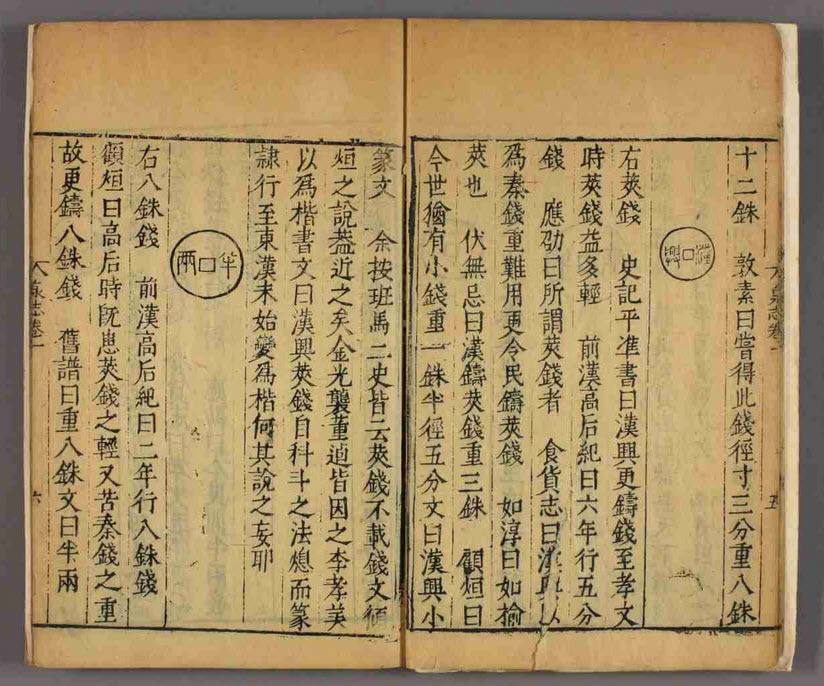 泉志卷一
五
十二銖　敦素曰嘗得此錢徑寸三分重八銖
漢興
右莢錢　史記平准書曰漢興更鑄錢至孝文
時莢錢益多輕　前漢高后紀曰六年行五分
錢　應劭曰所謂莢錢者　食貨志曰漢興以
爲秦錢重難用更令民鑄莢錢　如淳曰如榆
莢也　伏無忌曰漢鑄莢錢重三銖　顧烜曰
今世猶有小錢重一銖半徑五分文曰漢興小
篆文　余按班馬二史皆云莢錢不載錢文顧
烜之說葢近之矣金光襲董逌皆因之李孝美
以爲楷書文曰漢興莢錢自科斗之法熄而篆
隸行至東漢末始變爲楷何其說之妄耶
半兩
右八銖錢　前漢高后紀曰二年行八銖錢
顧烜曰高后時旣患莢錢之輕又苦秦錢之重
故更鑄八銖錢　舊譜曰重八銖文曰半兩
泉志卷一
六